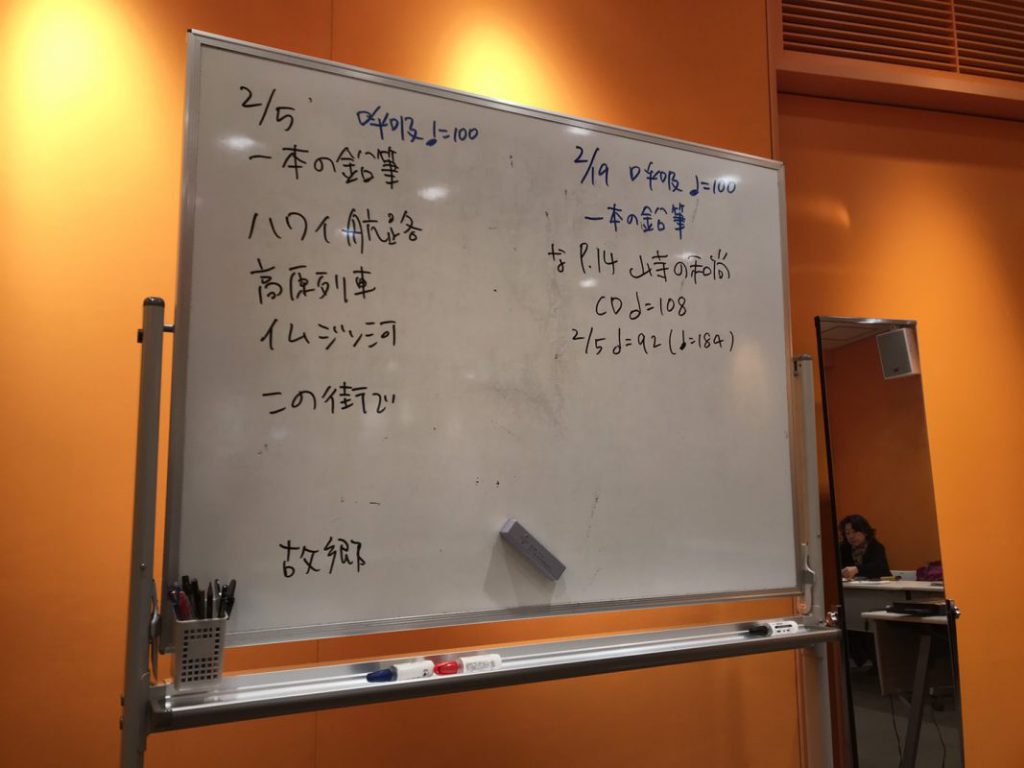 2/5 呼吸 ♩=100
一本の鉛筆
ハワイ航路
高原列車
イムジン河
この街で
故郷
2/19 呼吸 ♩=100
一本の鉛筆
な P.14 山寺の和尚
CD ♩=108
2/5 ♩=92 (♩=184)